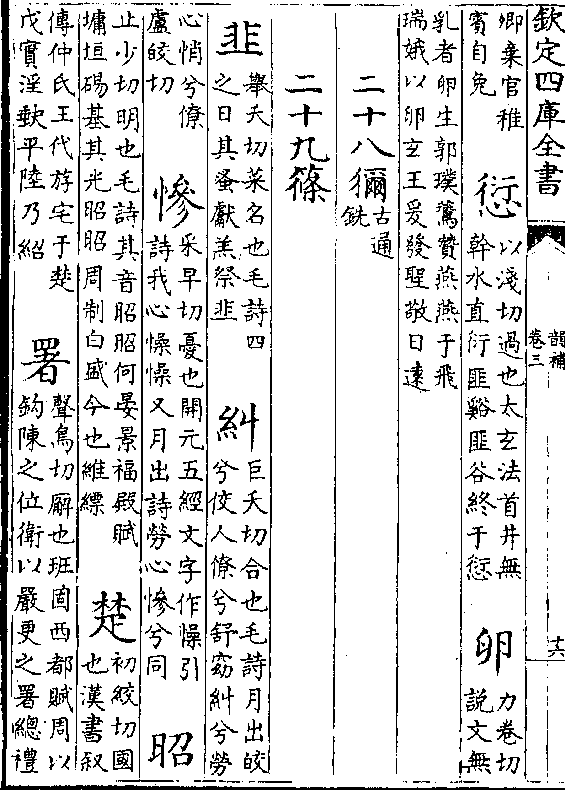 欽定四庫全書
韻補
卷三
十六
卿棄官稚
賓自免
愆
以淺切過也太玄法首井無
幹水直衍匪谿匪谷終于愆
卵
力卷切
說文無
乳者卵生郭璞鷰贊燕燕于飛
瑞娥以卵玄王爰發聖敬日逺
二十八獮
古通
銑
二十九篠
韭
舉夭切菜名也毛詩四
之日其蚤獻羔祭韭
糾
巨夭切合也毛詩月出皎
兮佼人僚兮舒窈糾兮勞
心悄兮僚
盧皎切
慘
采早切憂也開元五經文字作懆引
詩我心懆懆又月出詩勞心慘兮同
昭
止少切明也毛詩其音昭昭何晏景福殿賦
墉垣碭基其光昭昭周制白盛今也維縹
楚
初絞切國
也漢書叙
傳仲氏王代斿宅于楚
戊實淫平陸乃紹
署
聲鳥切廨也班固西都賦周以
鈎陳之位衛以嚴更之署總禮